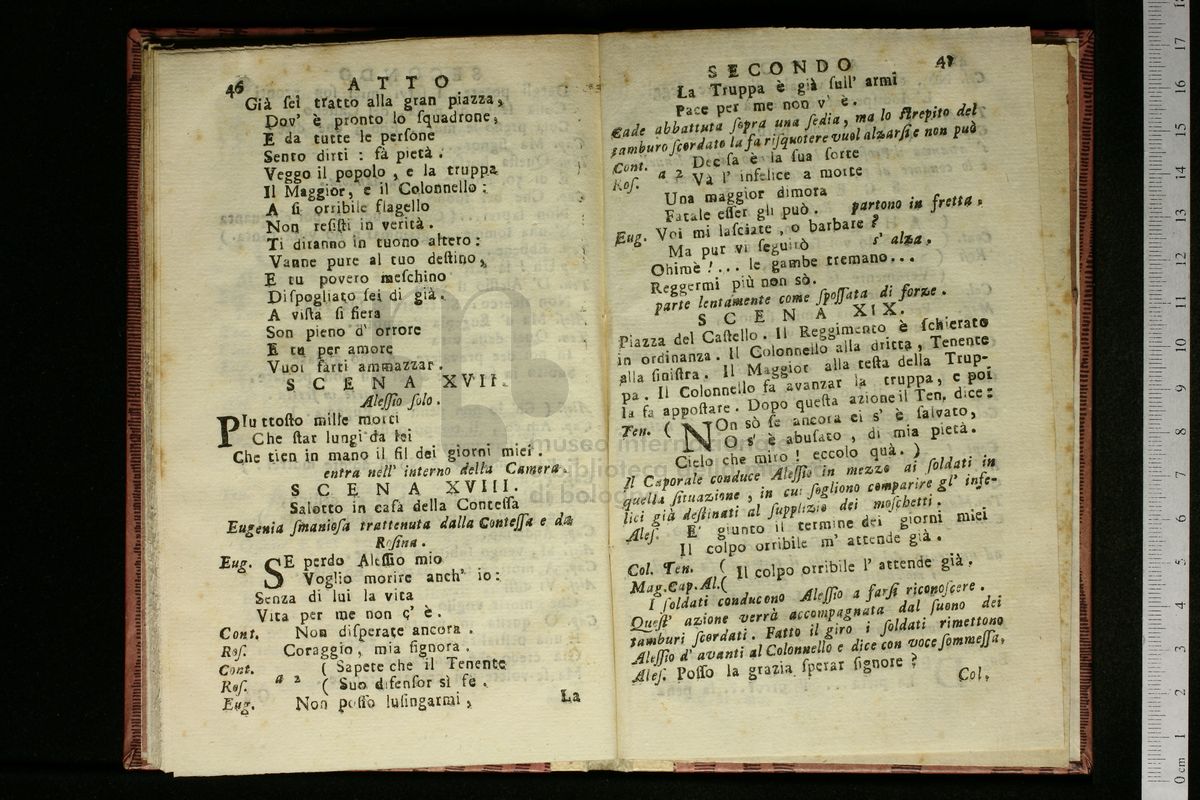 46
A T T O
Già sei tratto alla gran piazza,
Dov' è pronto lo squadrone,
E da tutte le persone
Sento dirti : fà pietà.
Veggo il popolo, e la truppa
Il Maggior, e il Colonnello :
A sì orribile flagello
Non resisti in verità.
Ti diranno in tuono altero :
Vanne pure al tuo destino,
E tu povero meschino
Dispogliato sei di già.
A vista sì fiera
Son pieno d' orrore
E tu per amore
Vuoi farti ammazzar.
S C E N A XVII.
Alessio solo.
PIu ttosto mille morti
Che star lungi da lei
Che tien in mano il fil dei giorni miei.
entra nell' interno della Camera.
S C E N A XVIII.
Salotto in casa della Contessa
Eugenia smaniosa trattenuta dalla Contessa e da
Rosina.
Eug. SE perdo Alessio mio
Voglio morire anch' io :
Senza di lui la vita
Vita per me non c' è.
Cont. Non disperate ancora.
Ros. Coraggio, mia signora.
Cont. ( Sapete che il Tenente
a 2
Ros. ( Suo difensor si fè.
Eug. Non posso lusingarmi,
La
S E C O N D O
47
La Truppa è già sull' armi
Pace per me non v' è.
Cade abbattuta sopra una sedia, ma lo strepito del
tamburo scordato la fa risquotere vuol alzarsi, e non può
Cont. Decisa è la sua sorte
a 2
Ros. Và l' infelice a morte
Una maggior dimora
Fatale esser gli può. partono in fretta.
Eug. Voi mi lasciate, o barbare ?
Ma pur vi seguirò s' alza.
Ohimè !... le gambe tremano...
Reggermi più non sò.
parte lentamente come spossata di forze.
S C E N A XIX.
Piazza del Castello. Il Reggimento è schierato
in ordinanza. Il Colonnello alla dritta, Tenente
alla sinistra. Il Maggior alla testa della Trup-
pa. Il Colonnello fa avanzar la truppa, e poi
la fa appostare. Dopo questa azione il Ten. dice :
Ten. ( NOn sò se ancora ei s' è salvato,
O s' è abusato, di mia pietà.
Cielo che miro ! eccolo quà. )
Il Caporale conduce Alessio in mezzo ai soldati in
quella situazione, in cui sogliono comparire gl' infe-
lici già destinati al supplizio dei moschetti.
Ales. E' giunto il termine dei giorni miei
Il colpo orribile m' attende già.
Col. Ten. (
Il colpo orribile l' attende già.
Mag. Cap. Al. (
I soldati conducono Alessio a farsi riconoscere.
Quest' azione verrà accompagnata dal suono dei
tamburi scordati. Fatto il giro i soldati rimettono
Alessio d' avanti al Colonnello e dice con voce sommessa,
Ales. Posso la grazia sperar signore ?
Col.